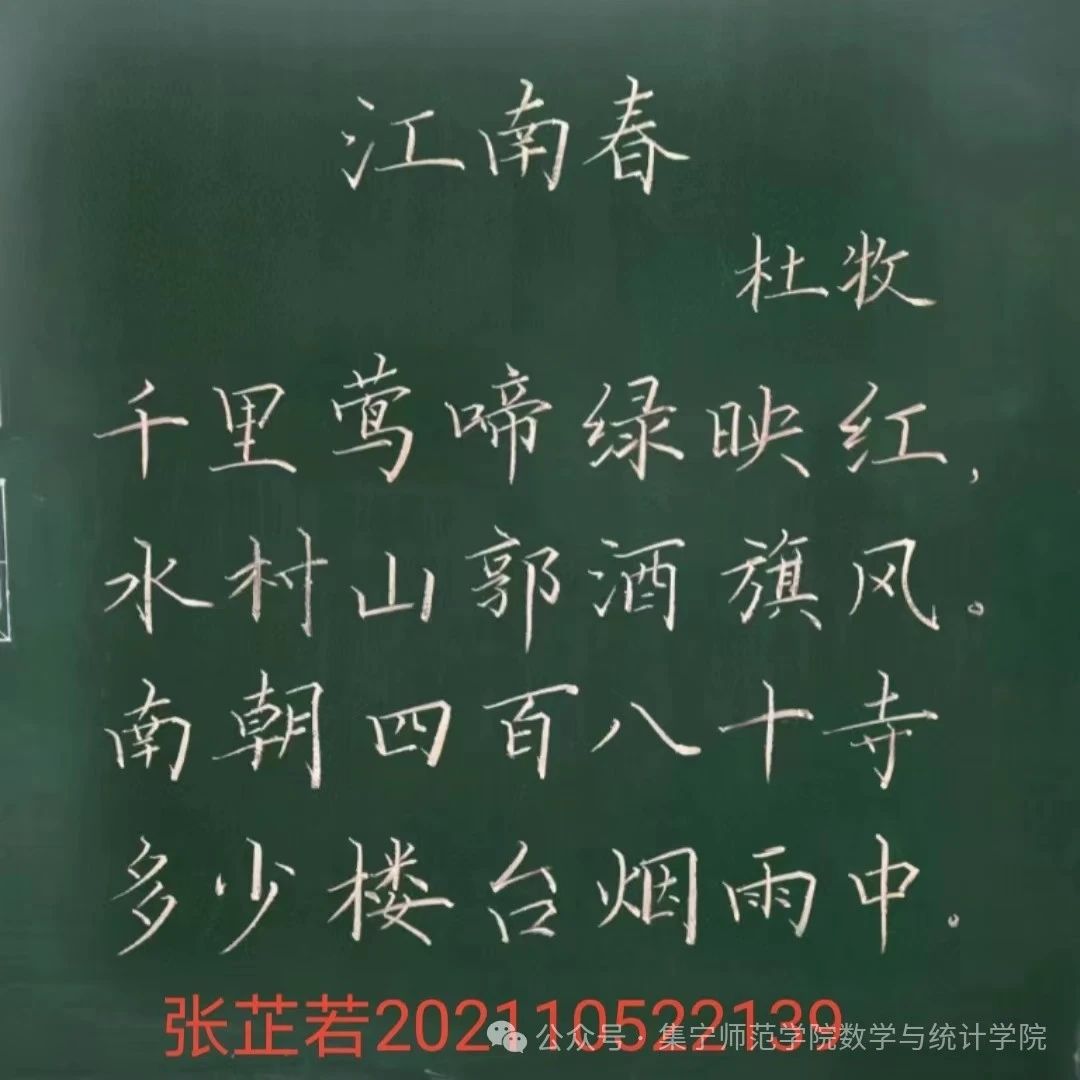 江南春
杜牧
千里莺啼绿映红，
水村山郭酒旗风。
南朝四百八十寺
多少楼台烟雨中。
张芷若202110522139
公众号·集宁师范学院数学与统计学院